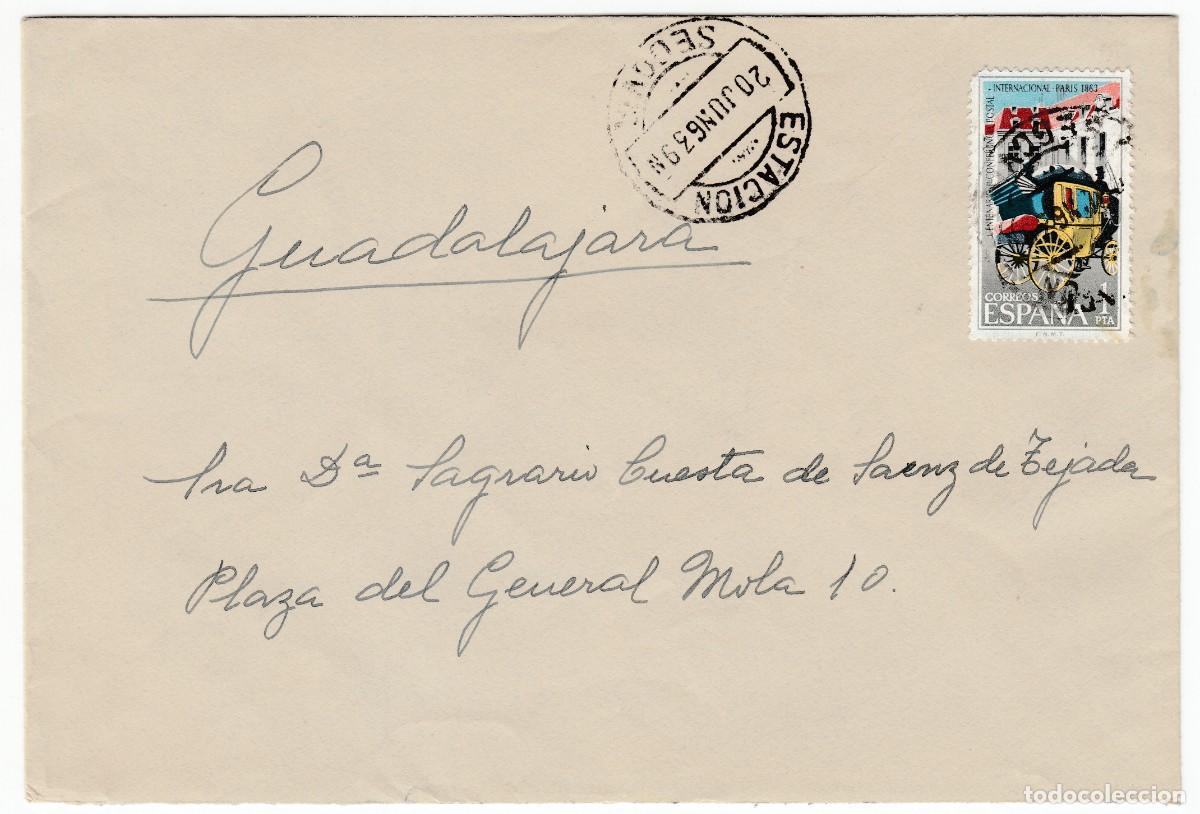 ESTACION
20 JUN 63 9N
SEGOVIA
INTERNACIONAL - PARIS 1863
CENTENARIO I CONFERENCIA POSTAL
CORREOS
ESPAÑA 1
PTA
F.N.M.T.
Guadalajara
Sra Dª Sagrario Cuesta de Saenz de Tejada
Plaza del General Mola 10.
todocoleccion